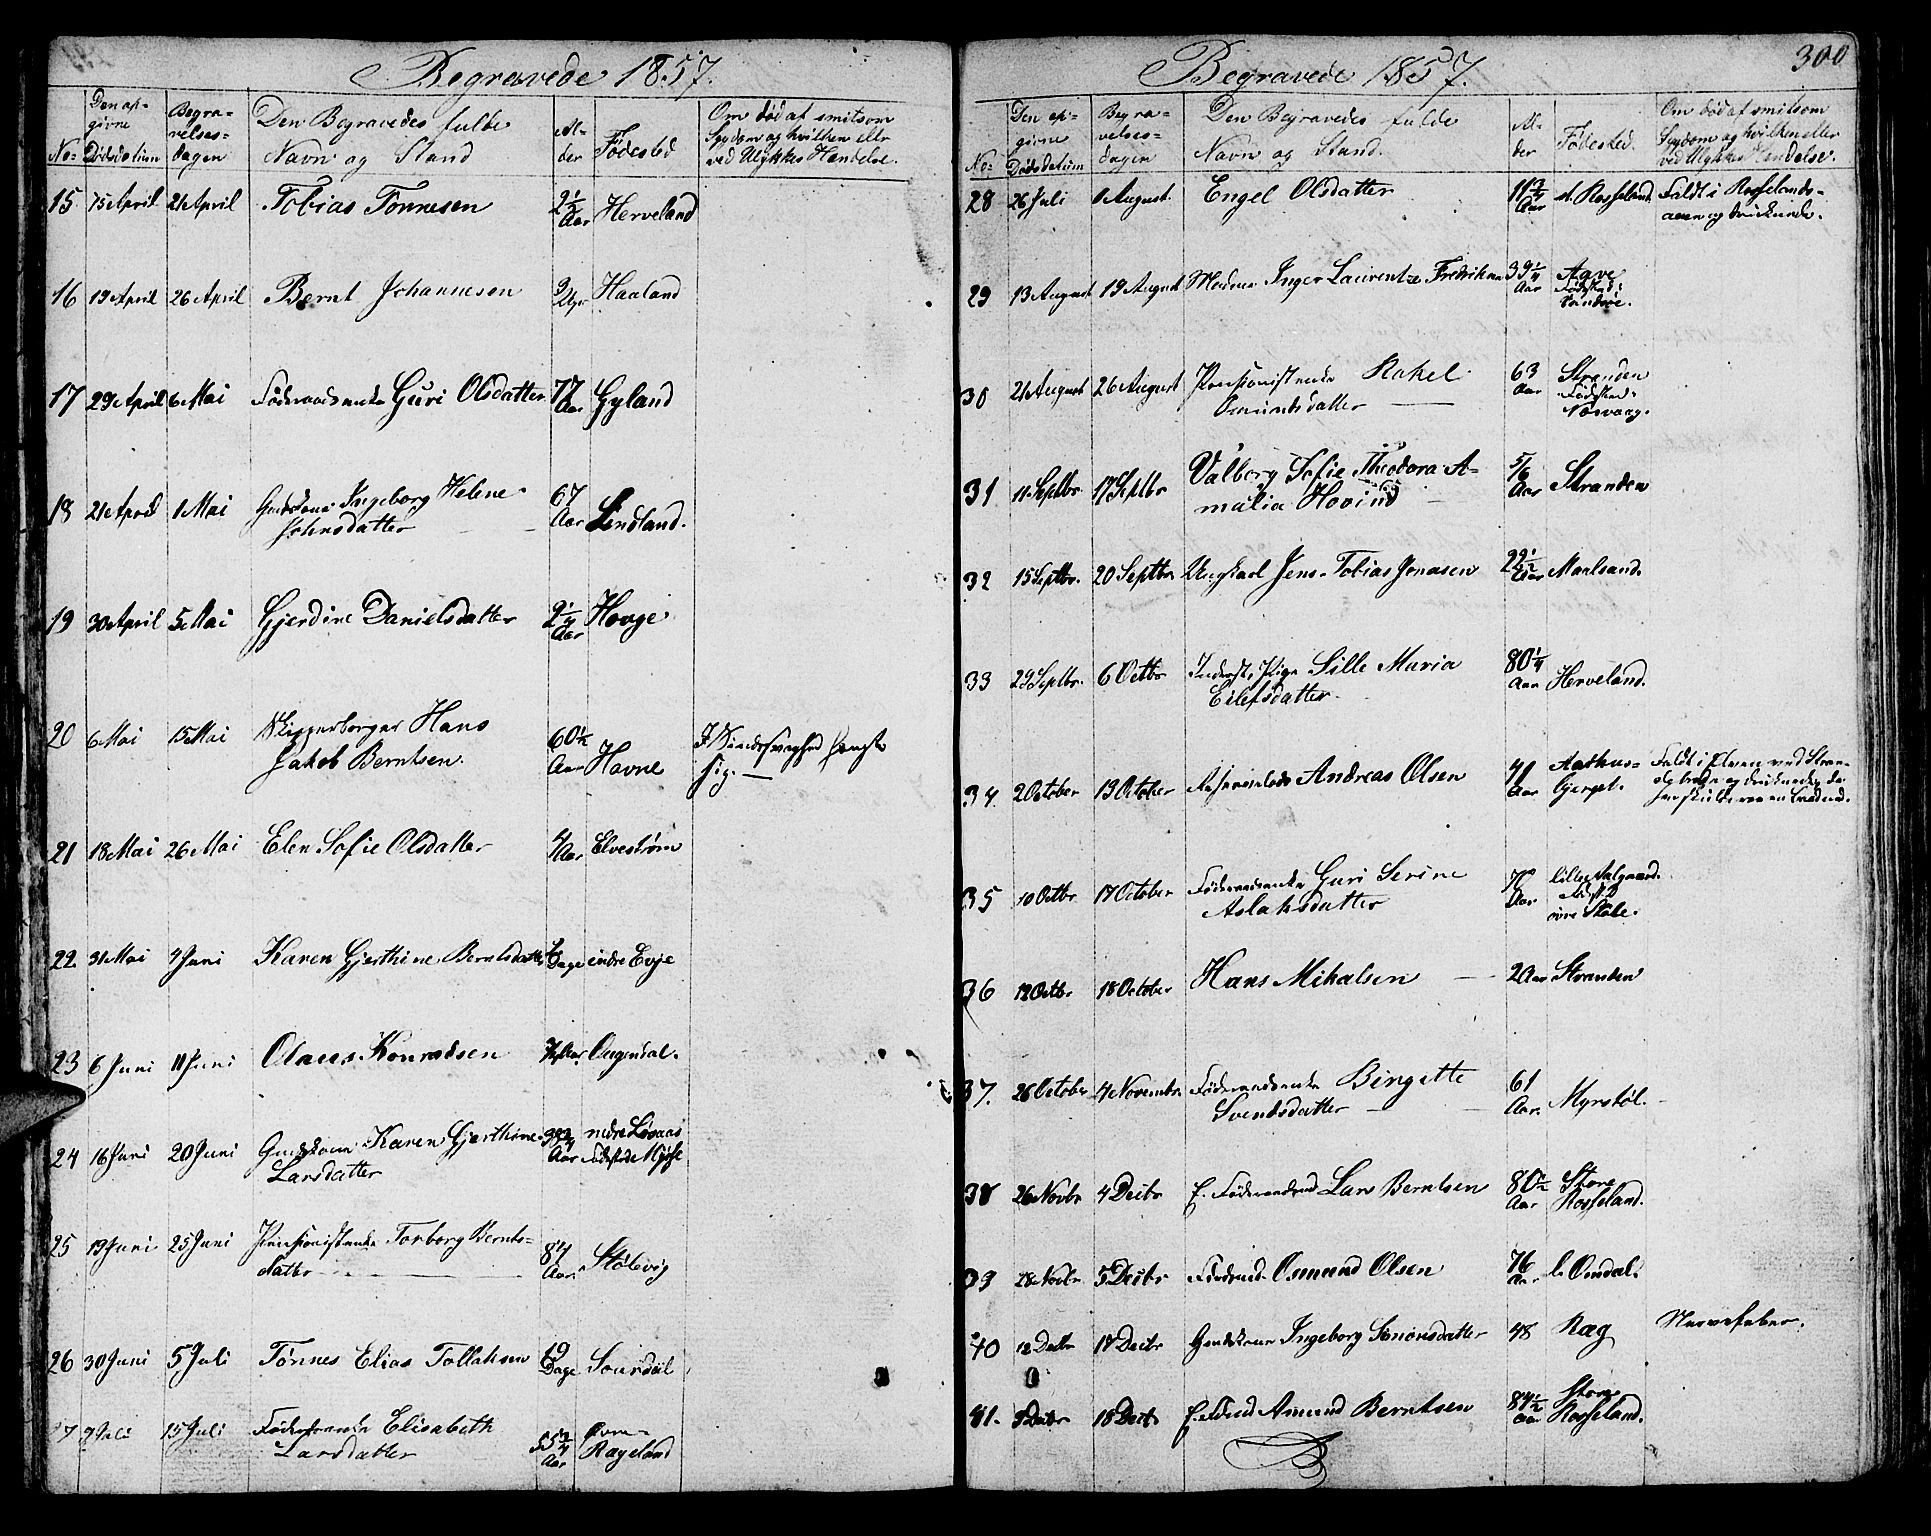 Begravede 1857.
No: Den opgivne Dødsdatum Begravelsesdagen Den Begravedes fulde Navn og Stand Alder Fødested Om død af smitsom Sygdom og hvilken eller ved Ulykkes Hendelse.
15 15 April 21 April Tobias Tønnesen 2½ Aar Herveland
16 19 April 26 April Bernt Johannesen Haaland
17 29 April 6 Mai Føderaadsenke Guri Olsdatter 77 Aar Gyland
18 21 April 1 Mai Gmdskone Ingeborg Helene
Johnsdatter 67 Aar Lindland.
19 30 April 5 Mai Gjerdine Danielsdatter 2¼ Aar Houge
20 6 Mai 15 Mai Skipperborger Hans
Jakob Berntsen. 60½ Aar Havne I Sindssvaghed hængte
sig.
21 18 Mai 26 Mai Elen Sofie Olsdatter 4 Aar Elvestrøm
22 31 Mai 4 Juni Karen Gjerthine Berntsdatter Dage indre Evje
23 6 Juni 11 Juni Olaus Konradsen Aar Augendal.
24 16 Juni 20 Juni Gmdskone Karen Gjerthine
Larsdatter 38¾ Aar nedre Løvaas
Fødested
25 19 Juni 25 Juni Pensionistenke Torborg Berntsdatter 84 Aar Stølevig
26 30 Juni 5 Juli Tønnes Elias Tollaksen 19 Dage Sourdal
27 7 Juli 15 Juli Føderaadsenke Elisabeth
Larsdatter 55¾ Aar Øvre
Rageland
Begravede 1857.
300
No: Den opgivne Dødsdatum Begravelsesdagen Den Begravedes fulde Navn og Stand. Alder Fødested. Om død af smitsom Sygdom og hvilken eller ved Ulykkes Hendelse.
28 26 Juli 1 August. Engel Olsdatter 11¾ Aar st. Rosseland Faldt i Rosselands-
aaen og druknede.
29 13 August 19 August Madme Inger Laurentze Fredriksen 39¼ Aar Aave
Fødested:
30 21 August 26 August Pensionistenke Rakel
Osmundsdatter 63 Aar Stranden
Fødested:
Næsvaag.
31 11 Septbr. 17 Septbr Valborg Sofie Theodora A-
malia Hovind 5/6 Aar Stranden
32 15 Septbr. 20 Septbr Ungkarl Jens Tobias Jonasen 22½ Aar
33 29 Septbr. 6 Octbr Inderst, Pige Sille Maria
Eilefsdatter. 80¼ Aar Herveland.
34. 2 October 13 October Andreas Olsen 41 Aar Aarhus-
bjerget. Faldt i Elven ved Stran-
og druknede, da
35 10 Octbr 17 October Føderaadsenke Guri Serine
Aslaksdatter 76 Aar lille Aalgaard.
Fødested
36 12 Octbr 18 October Hans Mikalsen 2 Aar Stranden
37. 26 October 4 Novembr. Føderaadsenke Birgitte
Svendsdatter 61 Aar. Myrstøl.
38 26 Novbr 4 Decbr F. Føderaadsmd Lars Berntsen 80½ Aar Store
Rosseland.
39 28 Novbr 5 Decbr Osmund Olsen 76 Aar l. Omdal.
40 12 Decbr 18 Decbr Gmdskone Ingeborg Simonsdatter 48 Ræg Nervefeber.
41. 9 Decbr 18 Decbr Amund Berntsen 84½ Aar Store
Rosseland.